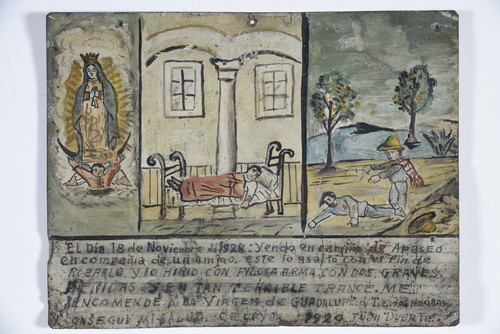 El Dia 18 de Noviembre de 1928. Yendo en camino de Apaseo
en compañia de un amigo, este lo asalto con el fin de
ROBARLO, y lo HIRIO CON FILOSA ARMA, CON DOS GRAVES
HERIDAS Y EN TAN TERRIBLE TRANCE. ME
ENCOMENDE A LA VIRGEN de GUADALUPE d Tierras Negras
CONSEGUI MI SALUD. CELAYO 1929 JUON DUERTE.